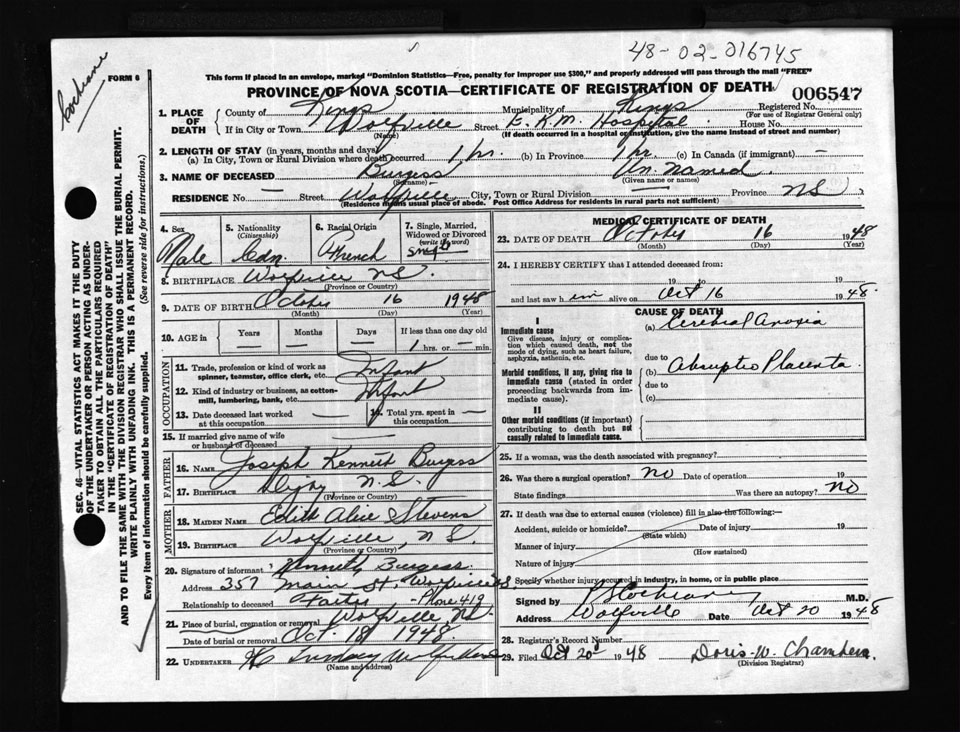 48-02-016745
Cochrane
FORM 6
This form if placed in an envelope, marked "Dominion Statistics—Free, penalty for improper use $300," and properly addressed will pass through the mail "FREE"
PROVINCE OF NOVA SCOTIA—CERTIFICATE OF REGISTRATION OF DEATH
006547
1. PLACE OF DEATH
County of Kings Municipality of Kings Registered No.
(For use of Registrar General only)
If in City or Town Wolfville Street E.K.M. Hospital House No.
(Name) (If death occurred in a hospital or institution, give the name instead of street and number)
2. LENGTH OF STAY (in years, months and days)
(a) In City, Town or Rural Division where death occurred 1 hr. (b) In Province 1 hr. (c) In Canada (if immigrant) —
3. NAME OF DECEASED Burgess Un-named.
(Surname) (Given name or names)
RESIDENCE No. — Street Wolfville City, Town or Rural Division Province NS
(Residence means usual place of abode. Post Office Address for residents in rural parts not sufficient)
4. Sex Male
5. Nationality (Citizenship) Cdn.
6. Racial Origin French
7. Single, Married, Widowed or Divorced (write the word) Single
8. BIRTHPLACE Wolfville N.S.
(Province or Country)
9. DATE OF BIRTH October 16 1948
(Month) (Day) (Year)
10. AGE in Years Months Days If less than one day old
— — — 1 hrs. — min.
OCCUPATION
11. Trade, profession or kind of work as spinner, teamster, office clerk, etc. Infant
12. Kind of industry or business, as cotton-mill, lumbering, bank, etc. Infant
13. Date deceased last worked at this occupation —
14. Total yrs. spent in this occupation —
15. If married give name of wife or husband of deceased —
FATHER
16. NAME Joseph Kenneth Burgess
17. BIRTHPLACE Digby N.S.
(Province or Country)
MOTHER
18. MAIDEN NAME Edith Alice Stevens
19. BIRTHPLACE Wolfville, N.S.
(Province or Country)
20. Signature of informant Kenneth Burgess.
Address 357 Main St. Wolfville N.S.
Relationship to deceased Father - Phone 419
21. Place of burial, cremation or removal Wolfville, N.S.
Date of burial or removal Oct. 18, 1948.
22. UNDERTAKER Wolfville
(Name and address)
MEDICAL CERTIFICATE OF DEATH
23. DATE OF DEATH October 16 1948
(Month) (Day) (Year)
24. I HEREBY CERTIFY that I attended deceased from:
19 to 19
and last saw him alive on Oct 16 1948.
CAUSE OF DEATH
I
Immediate cause
Give disease, injury or complication which caused death, not the mode of dying, such as heart failure, asphyxia, asthenia, etc.
(a) Cerebral Anoxia
due to
Morbid conditions, if any, giving rise to immediate cause (stated in order proceeding backwards from immediate cause).
(b) Abruptio Placenta.
due to
(c)
II
Other morbid conditions (if important) contributing to death but not causally related to immediate cause.
25. If a woman, was the death associated with pregnancy?
26. Was there a surgical operation? NO Date of operation 19
State findings Was there an autopsy? NO
27. If death was due to external causes (violence) fill in also the following:—
Accident, suicide or homicide? Date of injury 19
(State which)
Manner of injury
(How sustained)
Nature of injury
Specify whether injury occurred in industry, in home, or in public place
Signed by Cochrane M.D.
Address Wolfville Date Oct 20 1948
28. Registrar's Record Number
29. Filed Oct 20 1948 Doris W. Chambers.
(Division Registrar)
SEC. 46—VITAL STATISTICS ACT MAKES IT THE DUTY
OF THE UNDERTAKER OR PERSON ACTING AS UNDER-
TAKER TO OBTAIN ALL THE PARTICULARS REQUIRED
IN THE "CERTIFICATE OF REGISTRATION OF DEATH"
AND TO FILE THE SAME WITH THE DIVISION REGISTRAR WHO SHALL ISSUE THE BURIAL PERMIT.
WRITE PLAINLY WITH UNFADING INK. THIS IS A PERMANENT RECORD.
Every item of information should be carefully supplied. (See reverse side for instructions.)